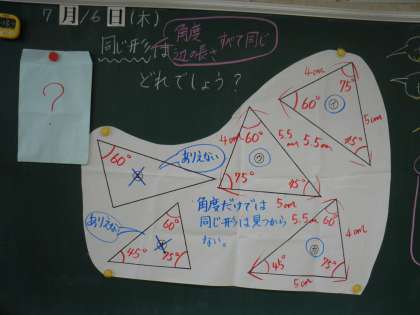 7月16日(木)
同じ形は 角度 辺の長さ すべて同じ
どれでしょう?
?
4cm
60°
75°
㋑
5cm
5.5cm
45°
4cm
60°
㋒
5.5
75°
45°
5cm
60°
ありえない
ありえない
60°
45°
75°
角度だけでは
同じ形は見つから
ない。
5.5cm
60°
4cm
45°
75°
5cm